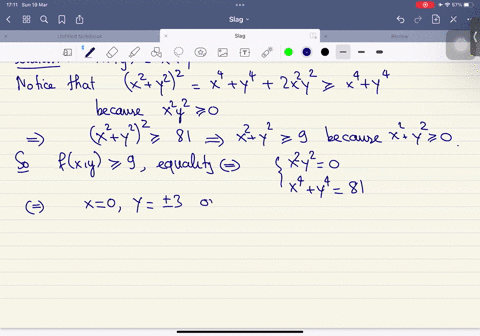 17:11 Sun 10 Mar
57%
Slag
Untitled Notebook
Slag
Review
Notice that (x²+y²)² = x⁴+y⁴ + 2x²y² ⩾ x⁴+y⁴
because x²y² ⩾ 0
⇒ (x²+y²)² ⩾ 81 ⇒ x²+y² ⩾ 9 because x²+y² ⩾ 0.
So f(x,y) ⩾ 9, equality (=) { x²y² = 0
x⁴+y⁴ = 81
(=) x=0, y= ±3 or